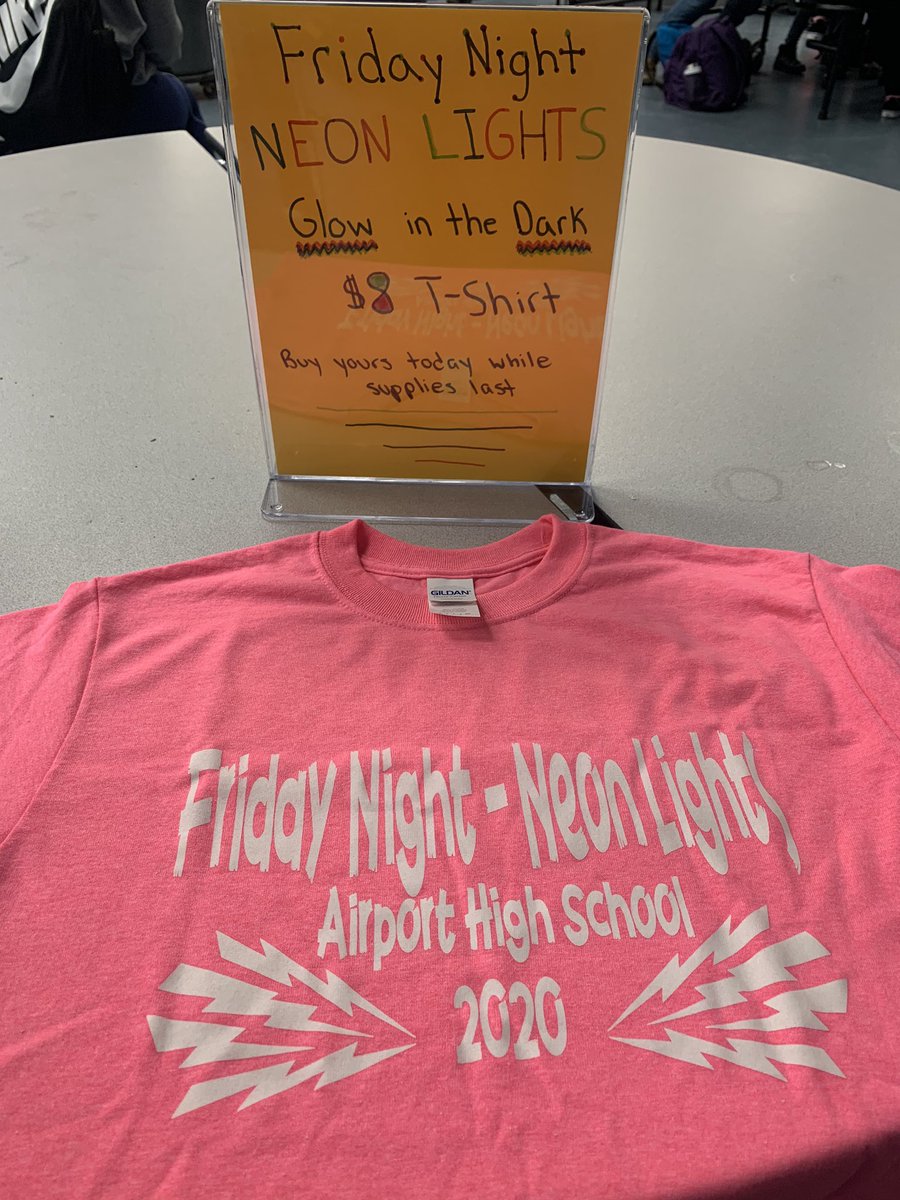 Friday Night
NEON LIGHTS
Glow in the Dark
$8 T-Shirt
Buy yours today while
supplies last
GILDAN
Friday Night - Neon Lights
Airport High School
2020